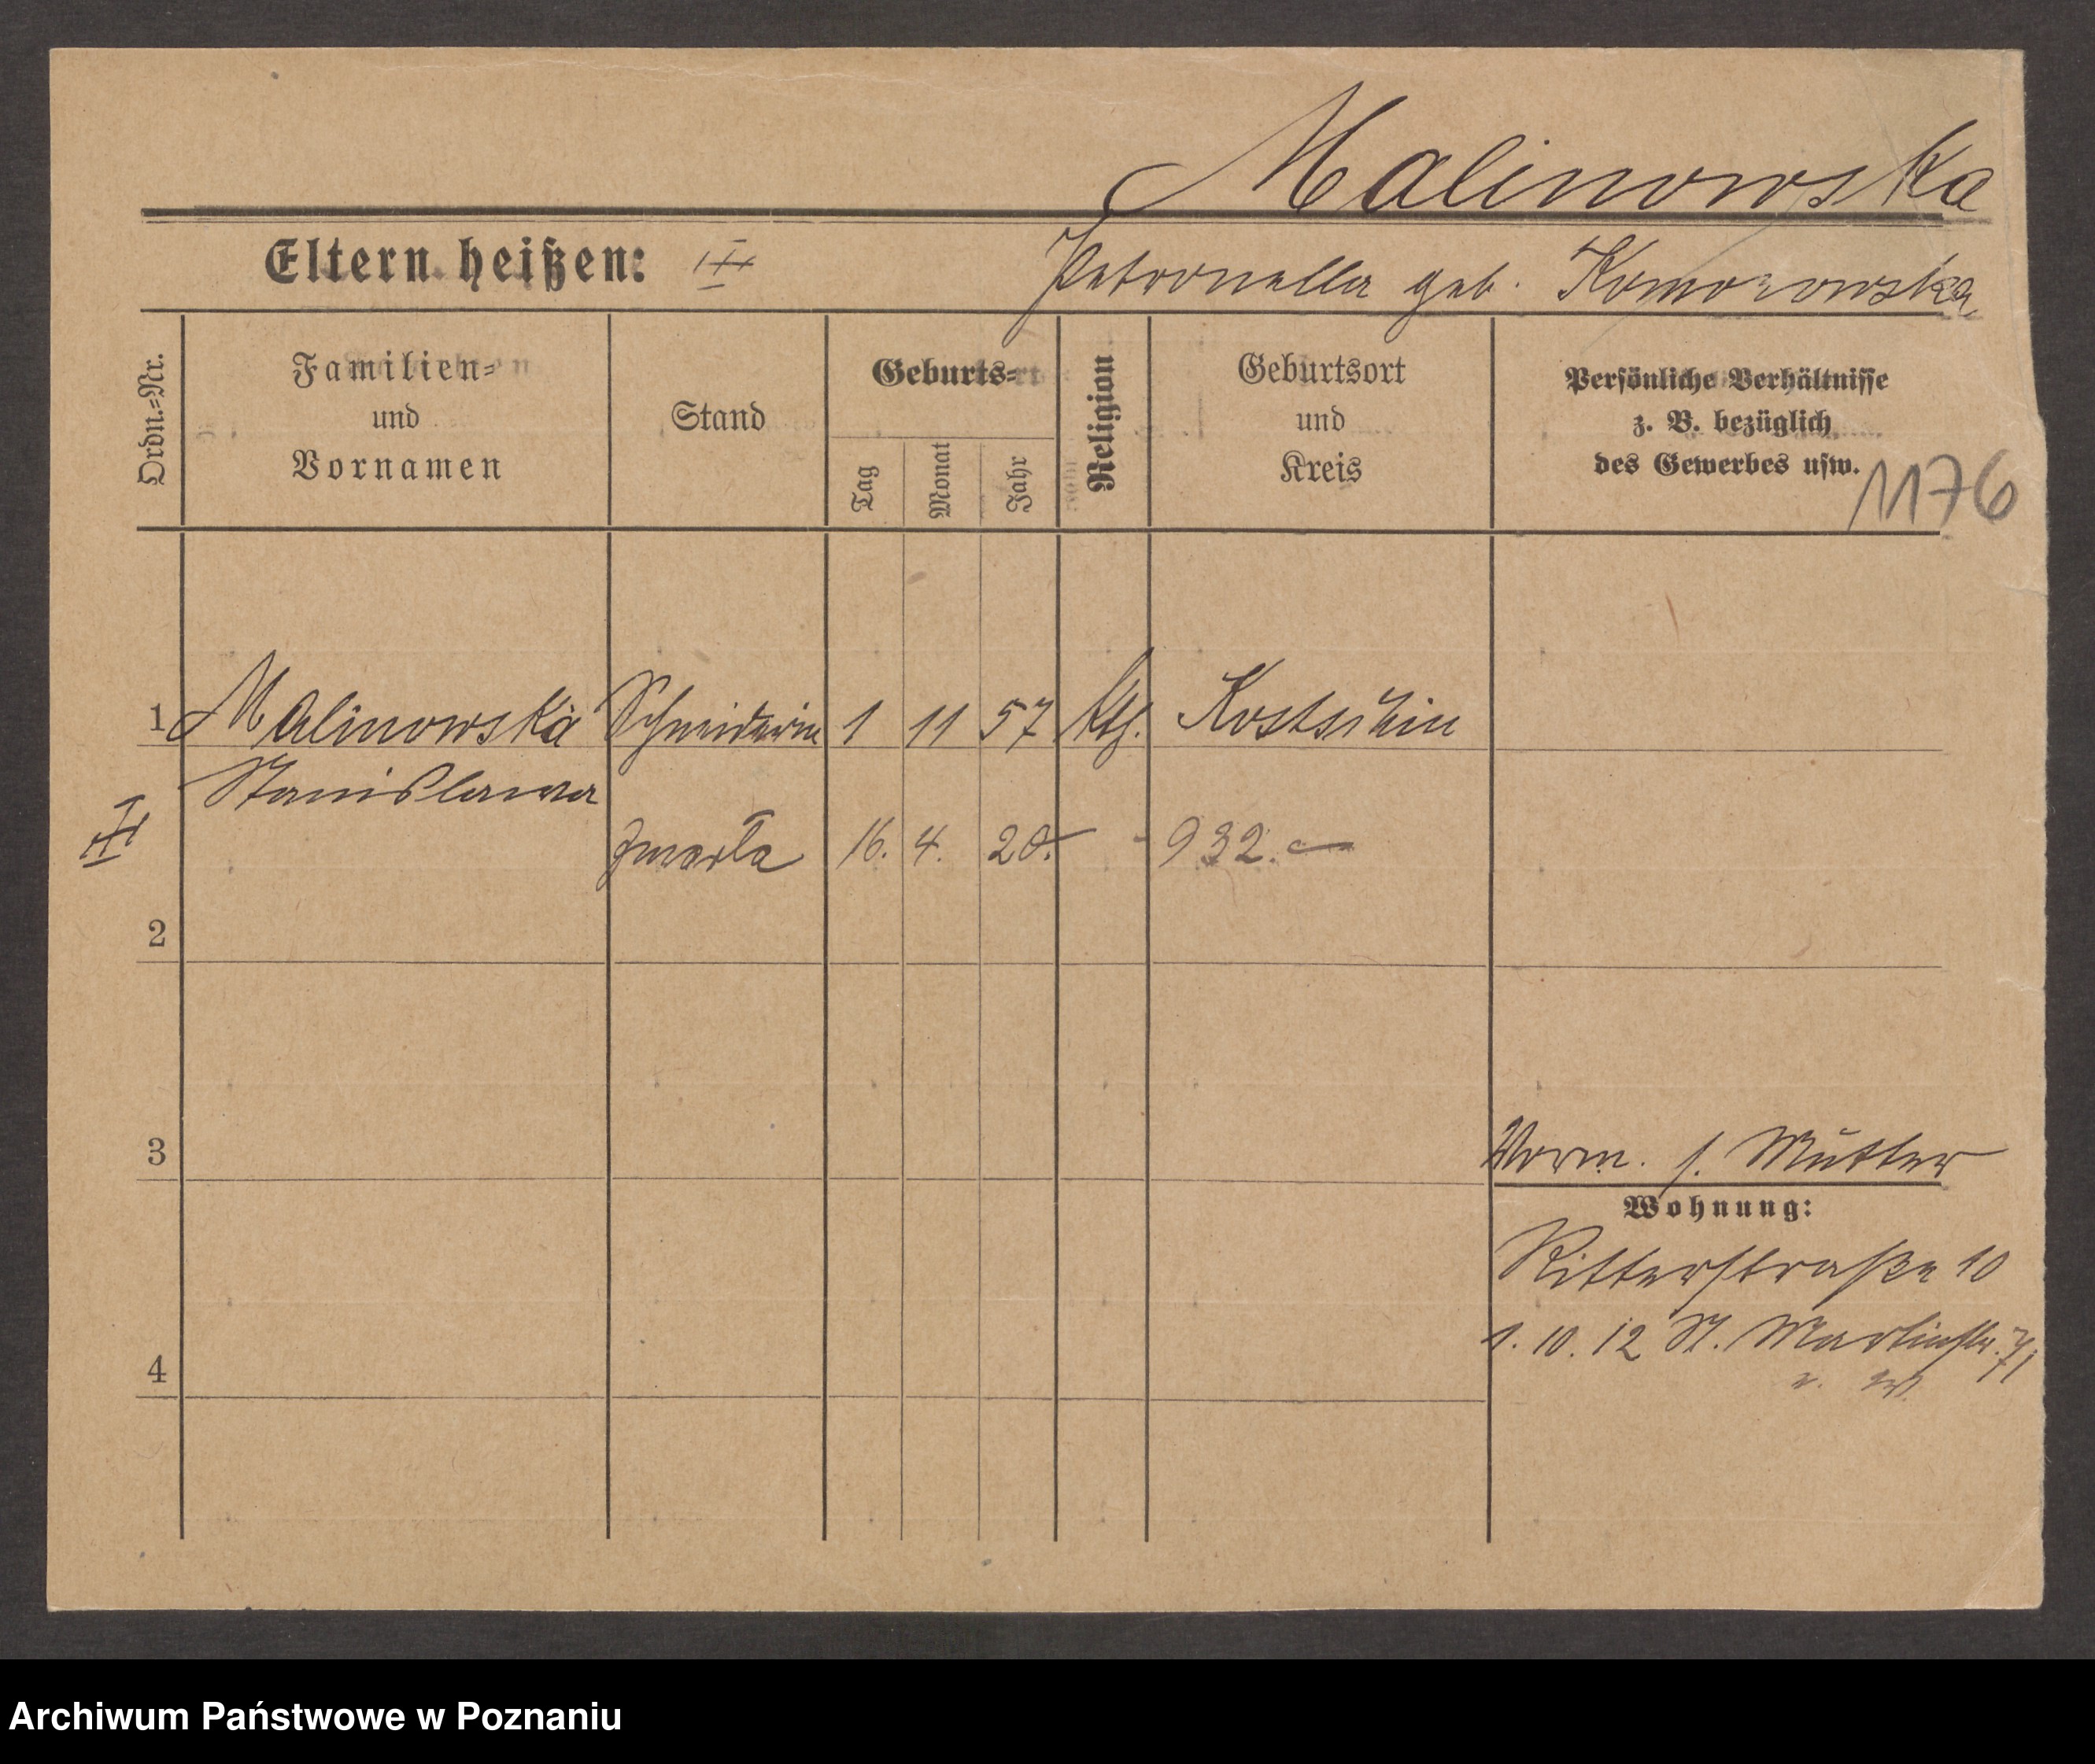 Malinowska
Eltern heißen:
Petronella geb. Komorowska
Ordn.-Nr.
Familien-
und
Vornamen
Stand
Geburts-
Tag
Monat
Jahr
Religion
Geburtsort
und
Kreis
Persönliche Verhältnisse
z. B. bezüglich
des Gewerbes usw.
1176
1 Malinowska Schneiderin 1 11 57 kth. Kostschin
Stanislawa
zmarła 16. 4. 20. - 932.
2
3
Vorm. s. Mutter
Wohnung:
Ritterstraße 10
1. 10. 12 St. Martinstr. 71
4
Archiwum Państwowe w Poznaniu